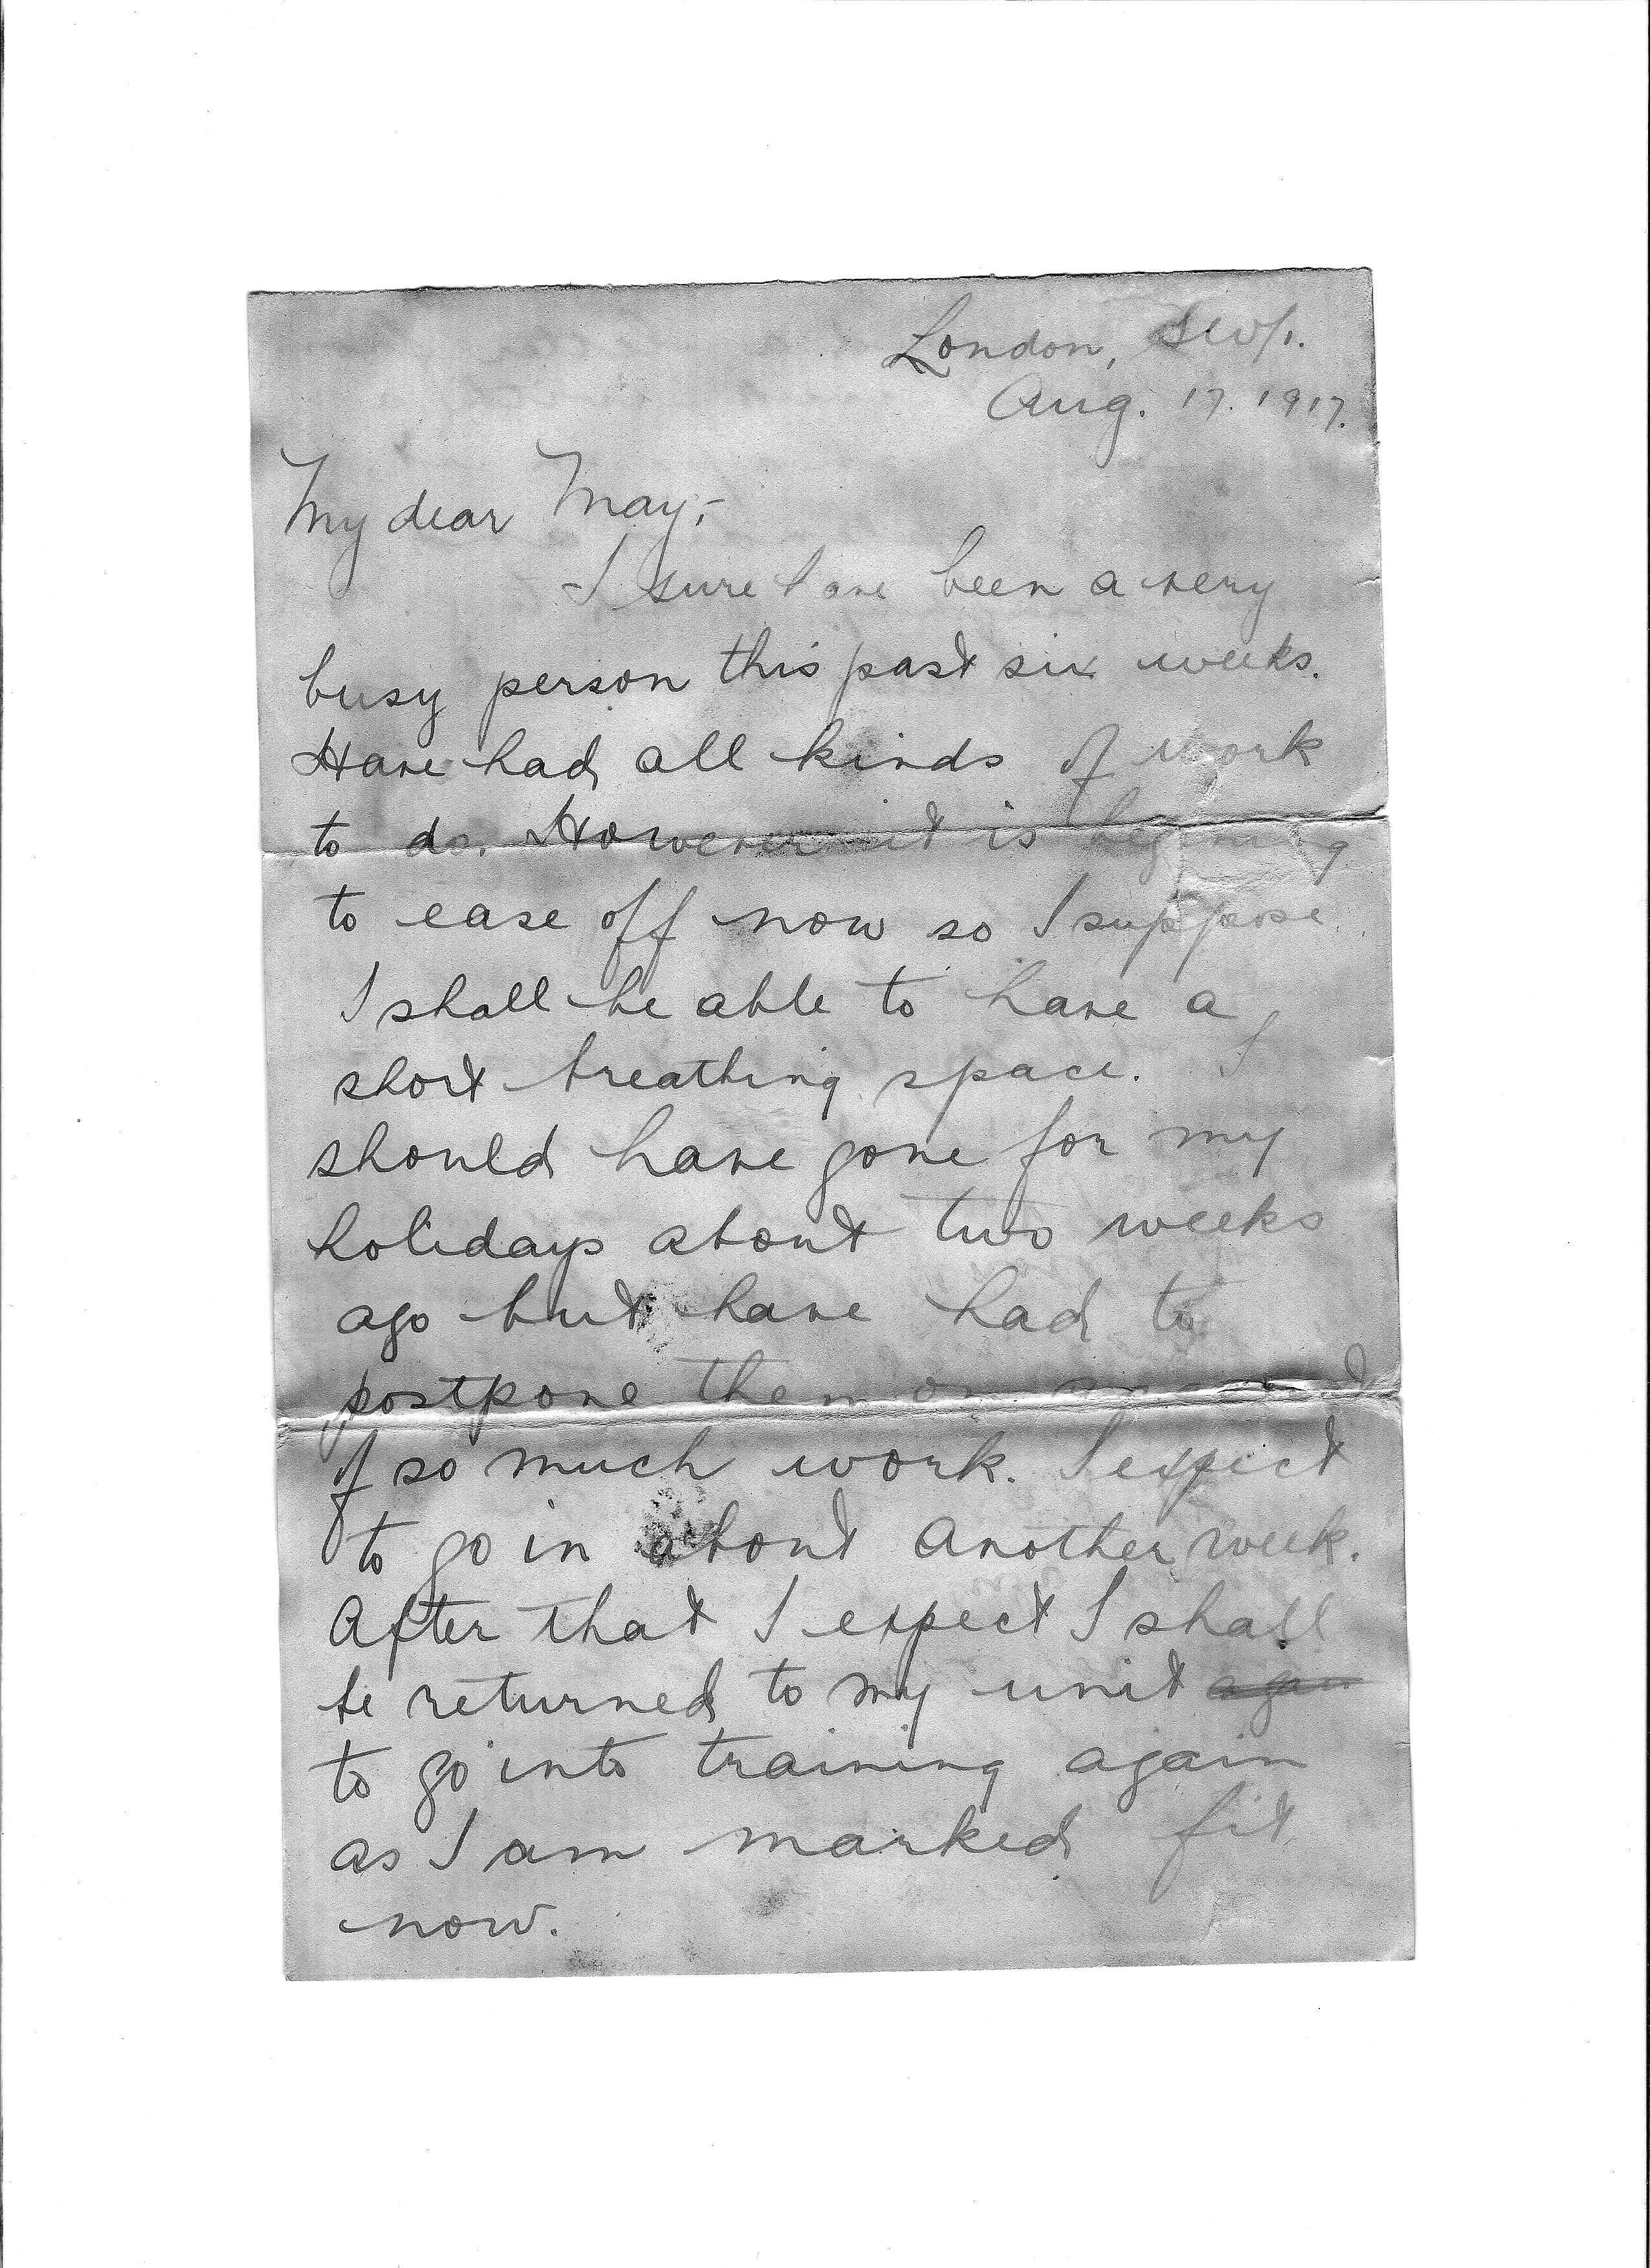 London, SW1.
Aug. 17. 1917.
My dear May,-
I sure have been a very
busy person this past six weeks.
Have had all kinds of work
to do. However it is begining
to ease off now so I suppose
I shall be able to have a
short breathing space. I
should have gone for my
holidays about two weeks
ago but have had to
postpone them on account
of so much work. I expect
to go in about another week.
After that I expect I shall
be returned to my unit again
to go into training again
as I am marked fit
now.